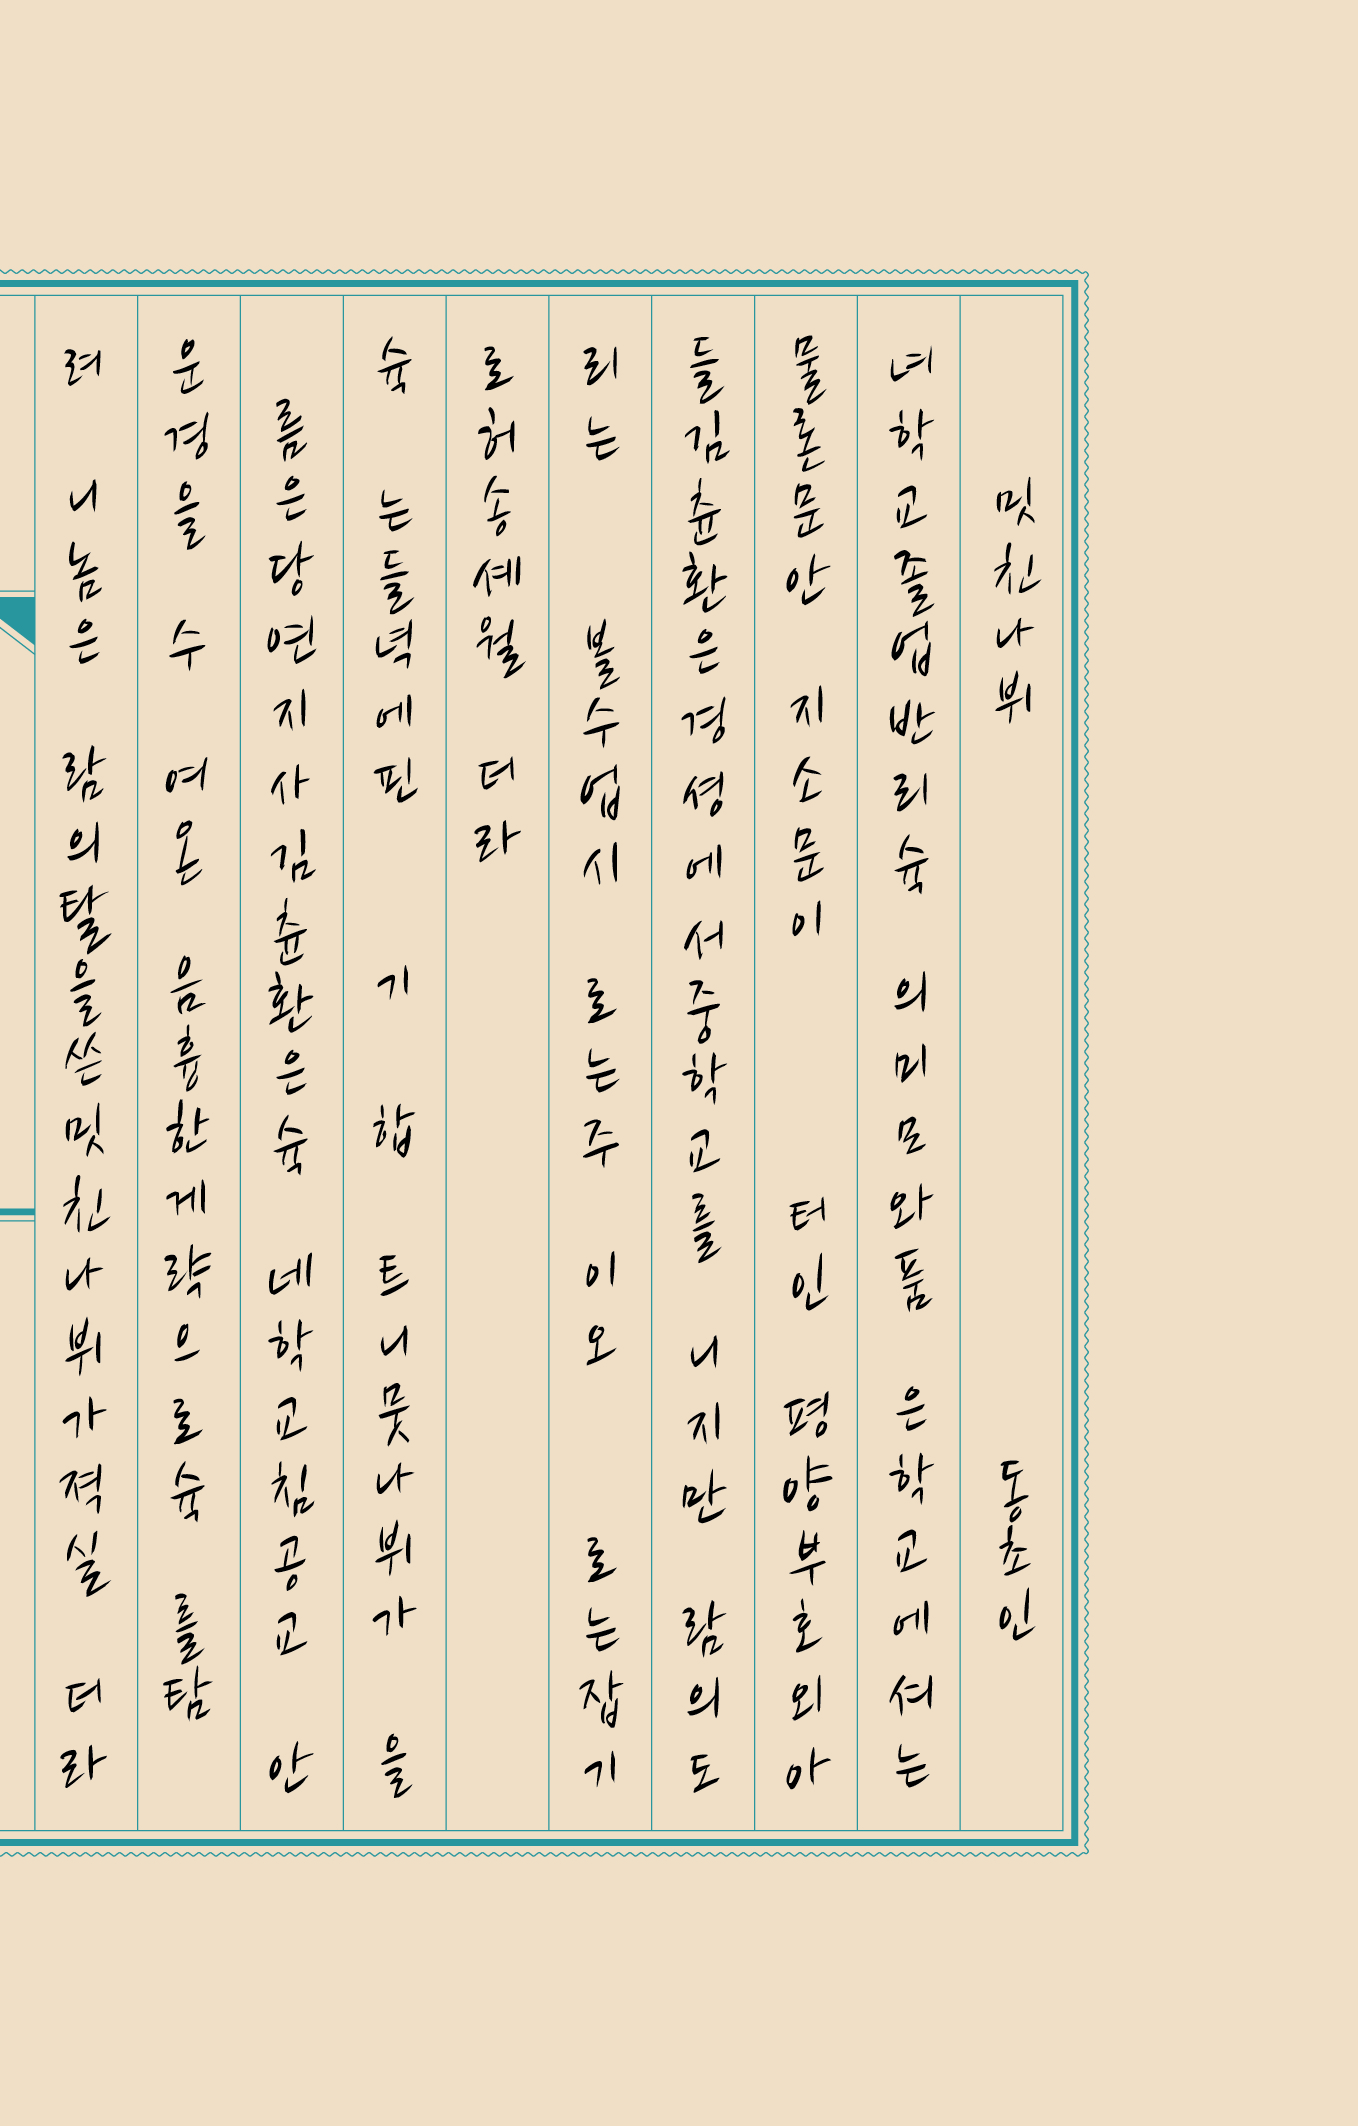 밋친나뷔 동초인
녀학교졸업반리슉 의미모와품 은학교에셔는
물론문안 지소문이 터인 평양부호외아
들김츈환은경셩에서중학교를 니지만 람의도
리는 볼수업시 로는주 이오 로는잡기
로허송셰월 더라
슉 는들녁에핀 기 합 트니뭇나뷔가 을
름은당연지사김츈환은슉 녜학교침공교 안
운경을 수 여온 음흉한게략으로슉 를탐
려 니놈은 람의탈을쓴밋친나뷔가젹실 더라